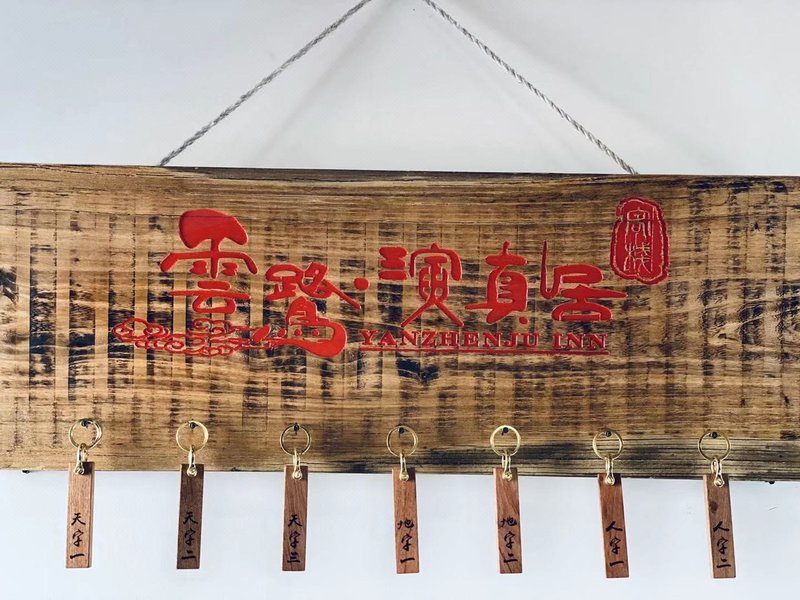 雲鹭·演真居
客栈
YANZHENJU INN
天字一
天字二
天字三
地字一
地字二
人字一
人字二